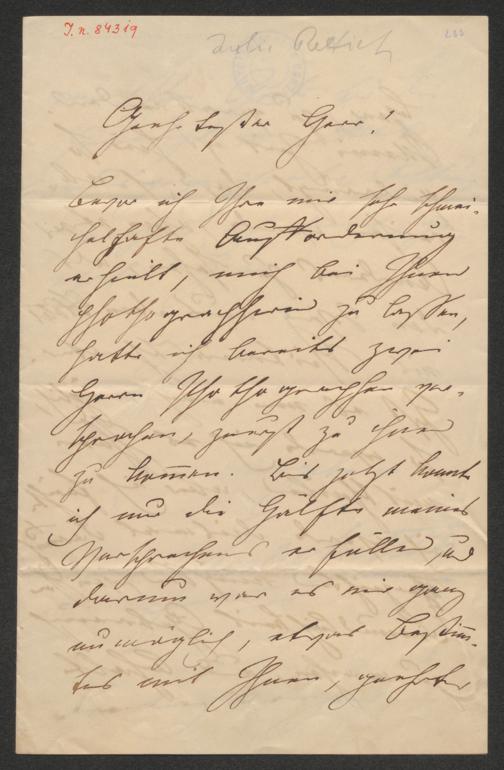 I.n. 84319
Julie Rettich
Geehrtester Herr!
Bevor ich Ihre mir sehr schmei-
chelhafte Aufforderung
erhielt, mich bei Ihnen
photographiren zu lassen,
hatte ich bereits zwei
Herrn Photographen ver-
sprochen, zuerst zu ihnen
zu kom̄en. Bis jetzt konnte
ich nur die Hälfte meines
Versprechens erfüllen, und
darum war es mir ganz
unmöglich, etwas Bestim̄-
tes mit Ihnen, geehrter